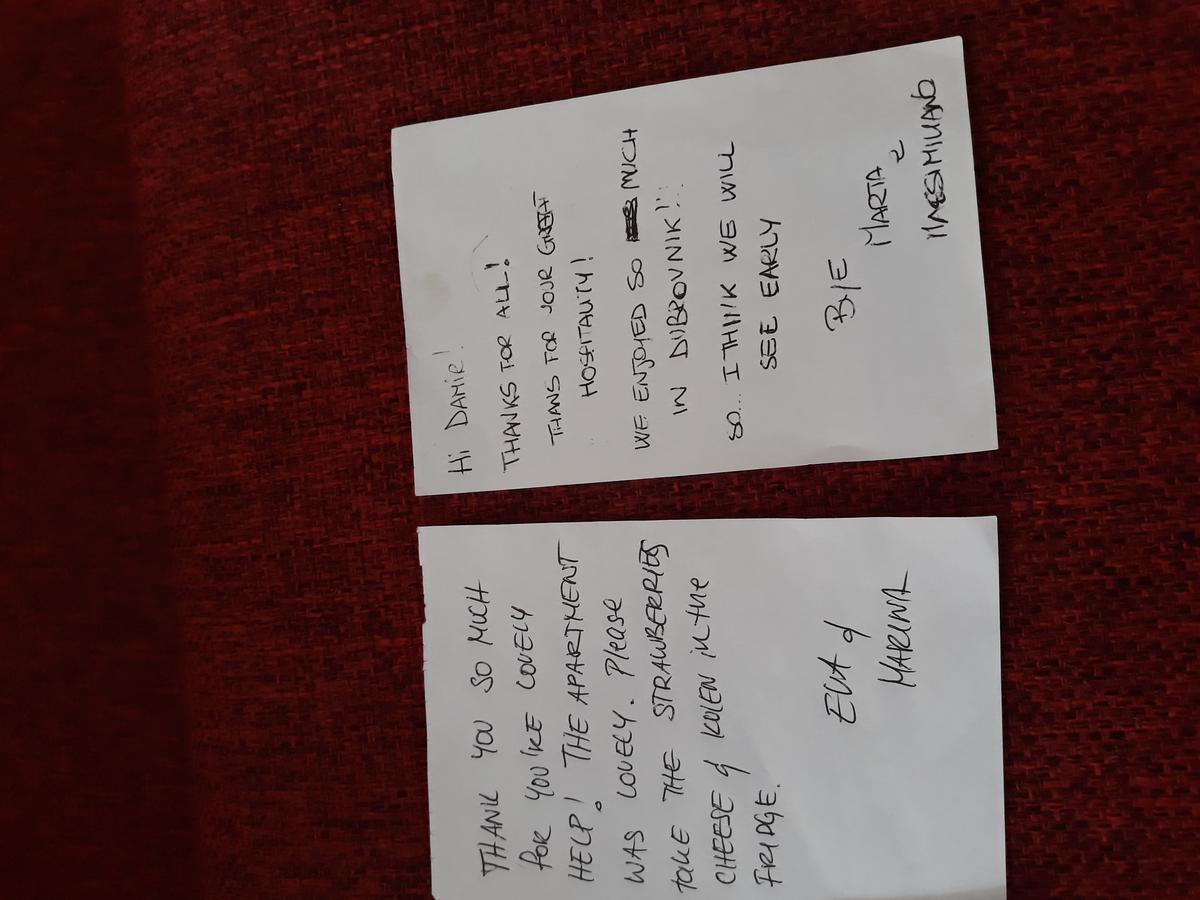 Hi DAMIR!
THANKS FOR ALL!
THANS FOR YOUR GREAT
HOSPITALITY!
WE ENJOYED SO MUCH
IN DUBROVNIK!!:
SO... I THINK WE WILL
SEE EARLY
BYE
MARTA e
MASSIMILIANO
THANK YOU SO MUCH
for YOU'RE LOVELY
HELP! THE APARTMENT
WAS LOVELY. Please
TAKE THE STRAWBERRIES
CHEESE & KULEN in the
FRIDGE.
EVA &
MARINA